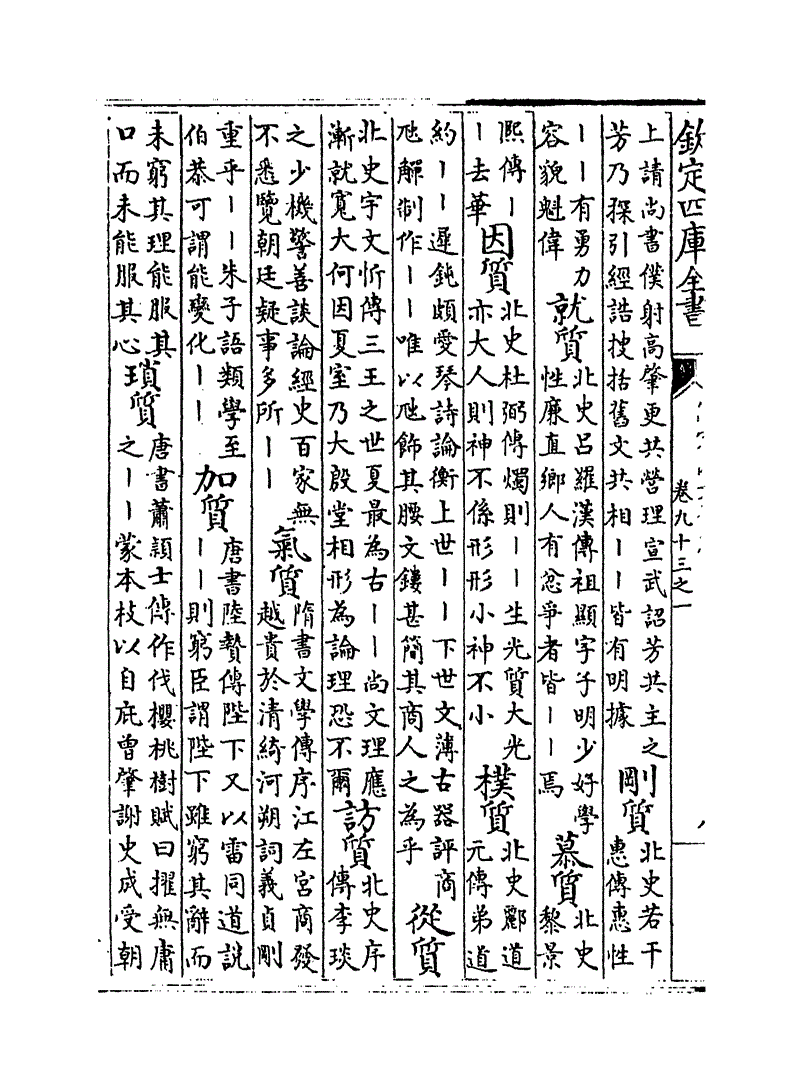 欽定四庫全書
卷九十三之一
上請尚書僕射高肇更共營理宣武詔芳共主之
芳乃探引經誥搜括舊文共相丨丨皆有明據
剛質
北史若干
惠傳惠性
丨丨有勇力
容貌魁偉
就質
北史呂羅漢傳祖顯字子明少好學
性廉直鄉人有忿爭者皆丨丨焉
慕質
北史
黎景
熙傳丨
丨去華
因質
北史杜弼傳燭則丨丨生光質大光
亦大人則神不係形形小神不小
樸質
北史酈道
元傳弟道
約丨丨遲鈍頗愛琴詩論衡上世丨丨下世文薄古器評商
匜觶制作丨丨唯以匜飾其腰文鏤甚簡其商人之為乎
從質
北史宇文忻傳三王之世夏最為古丨丨尚文理應
漸就寬大何因夏室乃大殷堂相形為論理恐不爾
訪質
北史序
傳李琰
之少機警善談論經史百家無
不悉覽朝廷疑事多所丨丨
氣質
隋書文學傳序江左宮商發
越貴於清綺河朔詞義貞剛
重乎丨丨朱子語類學至
伯恭可謂能變化丨丨
加質
唐書陸贄傳陛下又以雷同道說
丨丨則窮臣謂陛下雖窮其辭而
未窮其理能服其
口而未能服其心
瑣質
唐書蕭穎士傳作伐櫻桃樹賦曰擢無庸
之丨丨蒙本枝以自庇曾肇謝史成受朝